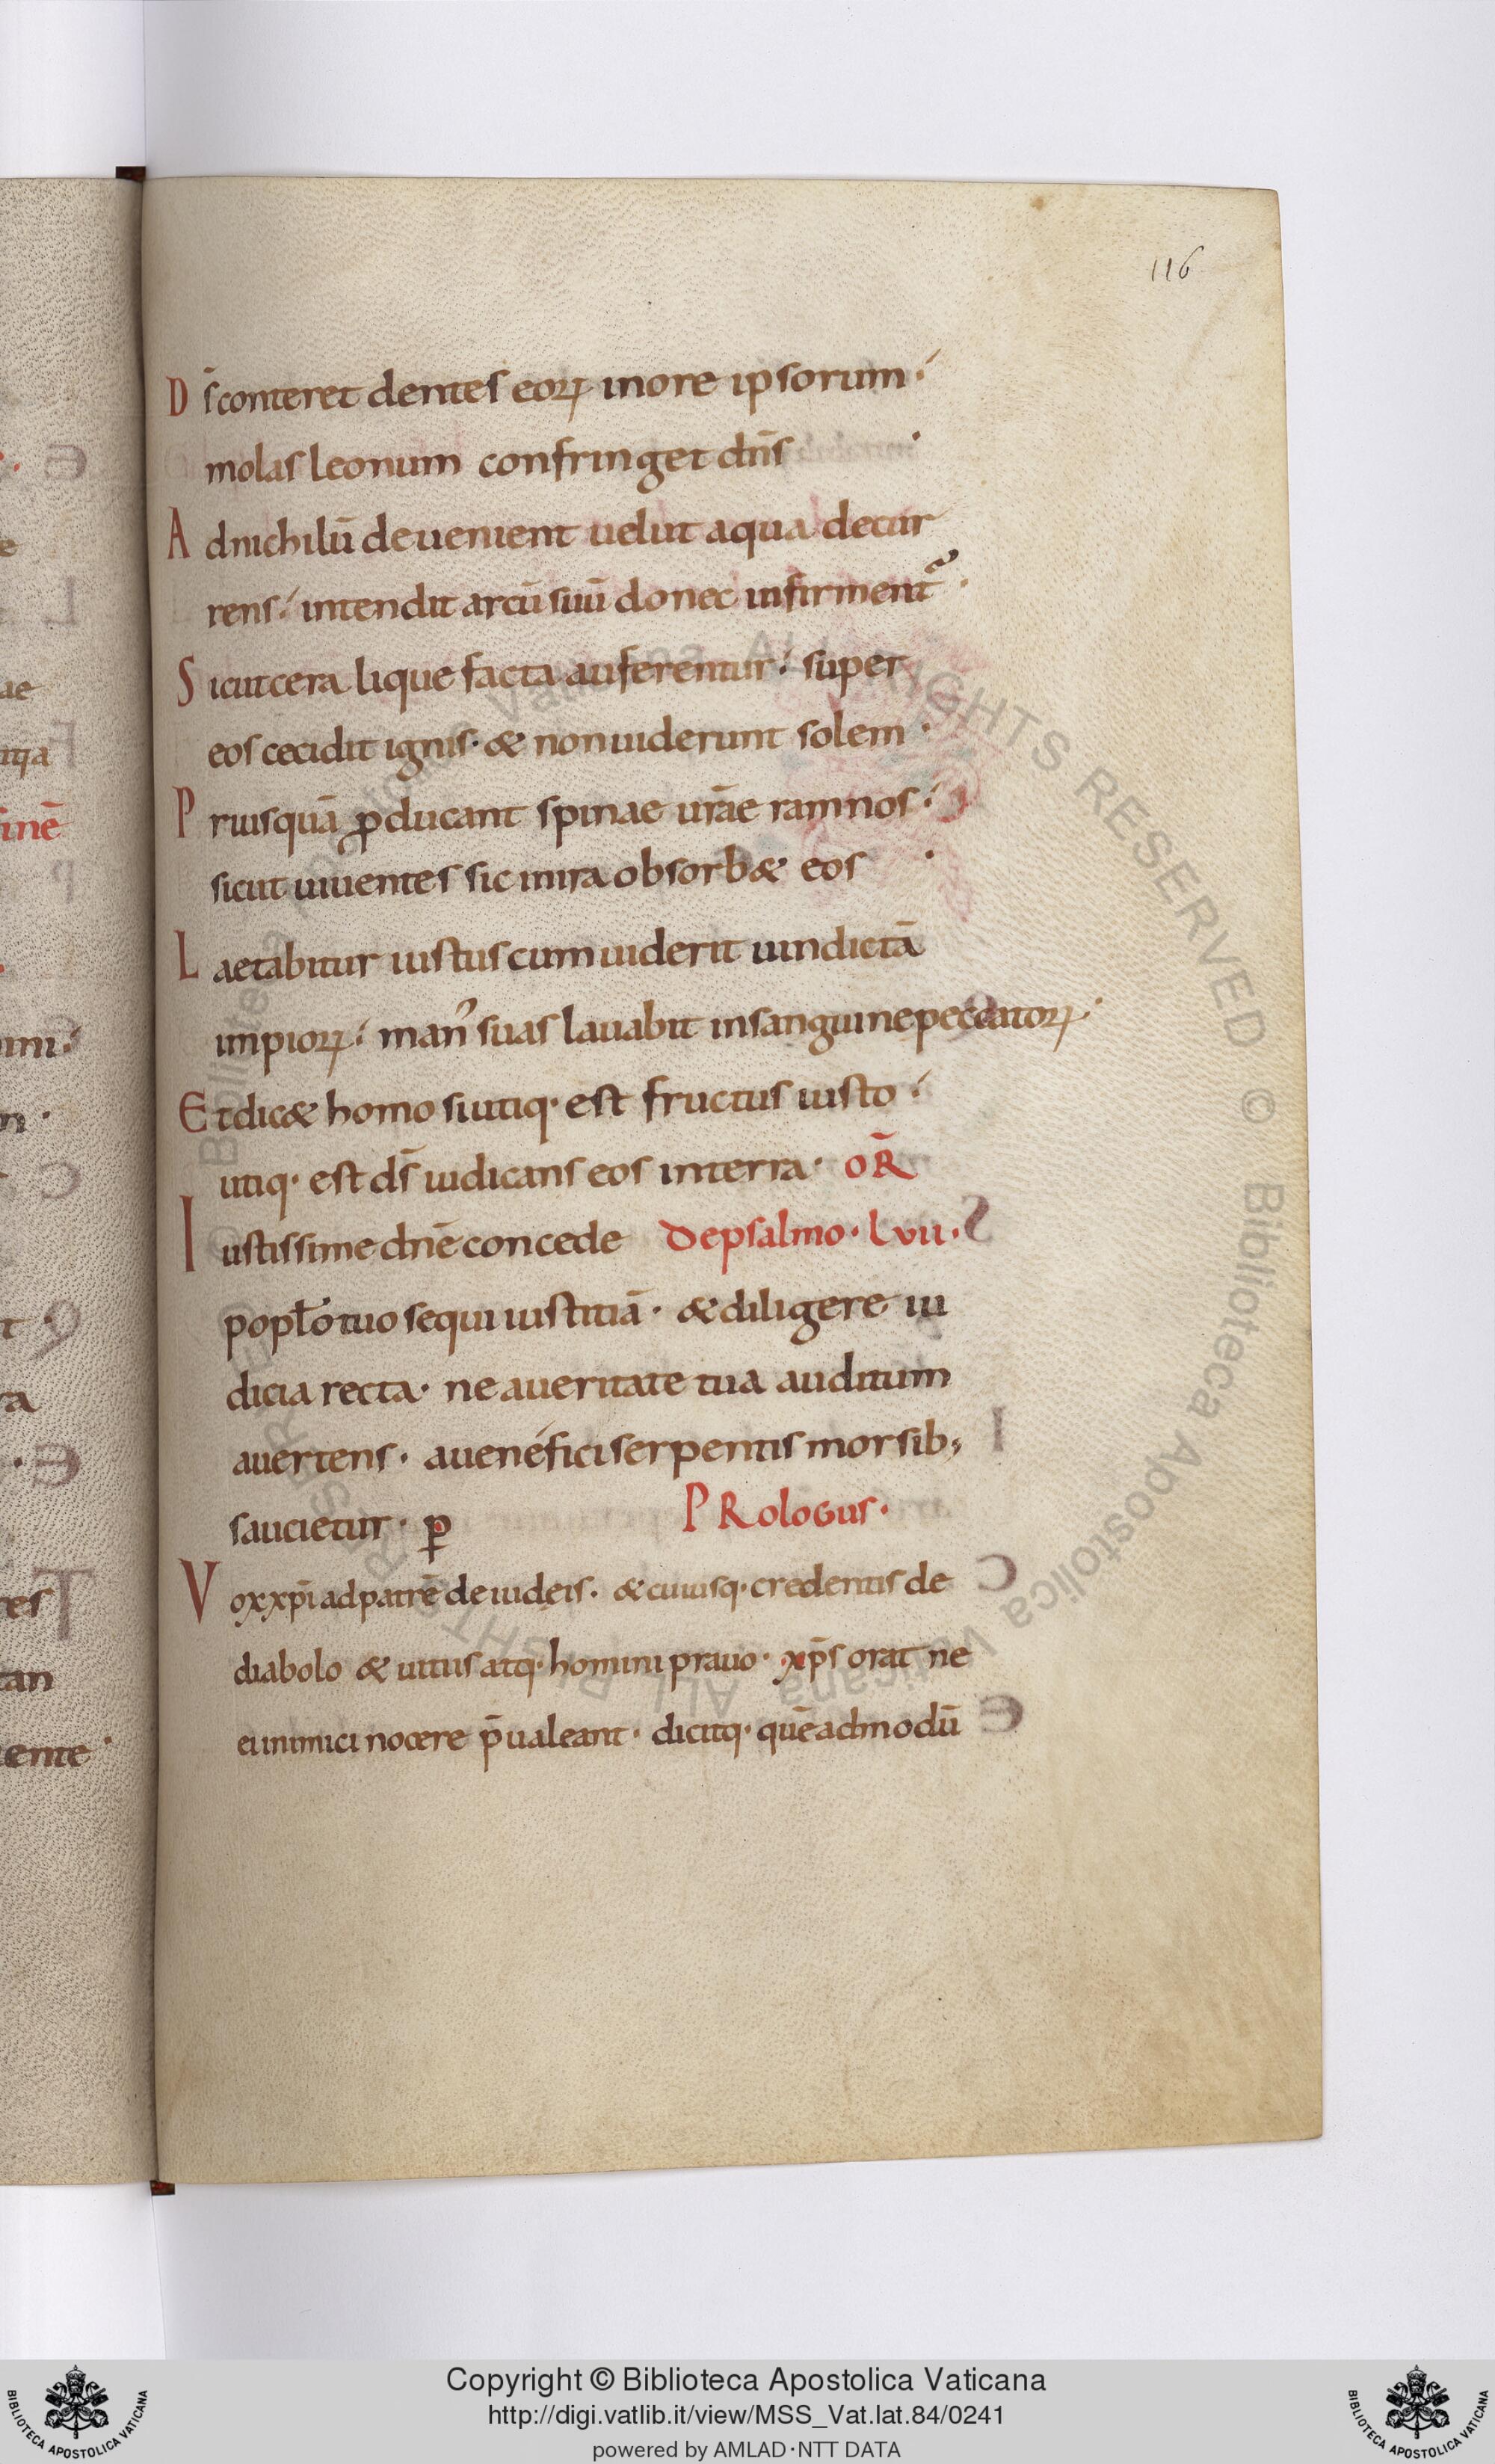 116
Ds̄ conteret dentes eoꝝ in ore ipsorum·
molas leonum confringet dn̄s ·
Ad nichilū deuenient uelut aqua decur
rens· intendit arcū suū donec infirment᷑·
Sicut cera liquefacta auferentur· super
eos cecidit ignis· & non uiderunt solem·
Priusquā ꝓducant spinae ur̄ae ramnos·
sicut uiuentes sic in ira obsorb& eos ·
Laetabitur iustus cum uiderit uindictā
impioꝝ· man᾽ suas lauabit in sanguine peccatoꝝ·
Et dic& homo si utiq· est fructus iusto·
utiq· est ds̄ iudicans eos in terra· OR̄
Iustissime dn̄e concede De psalmo· lvii·
popł̄o tuo sequi iustitiā· & diligere iu
dicia recta· ne a ueritate tua auditum
auertens· a uenefici serpentis morsib;
saucietur· p̲ PRoloGus·
Vox xp̄i ad patrē de iudeis· & cuiusq· credentis de
diabolo & uitiis atq· homini prauo· xp̄s orat ne
ei inimici nocere p̄ualeant· dicitq· quēadmodū
Copyright © Biblioteca Apostolica Vaticana
http://digi.vatlib.it/view/MSS_Vat.lat.84/0241
powered by AMLAD·NTT DATA